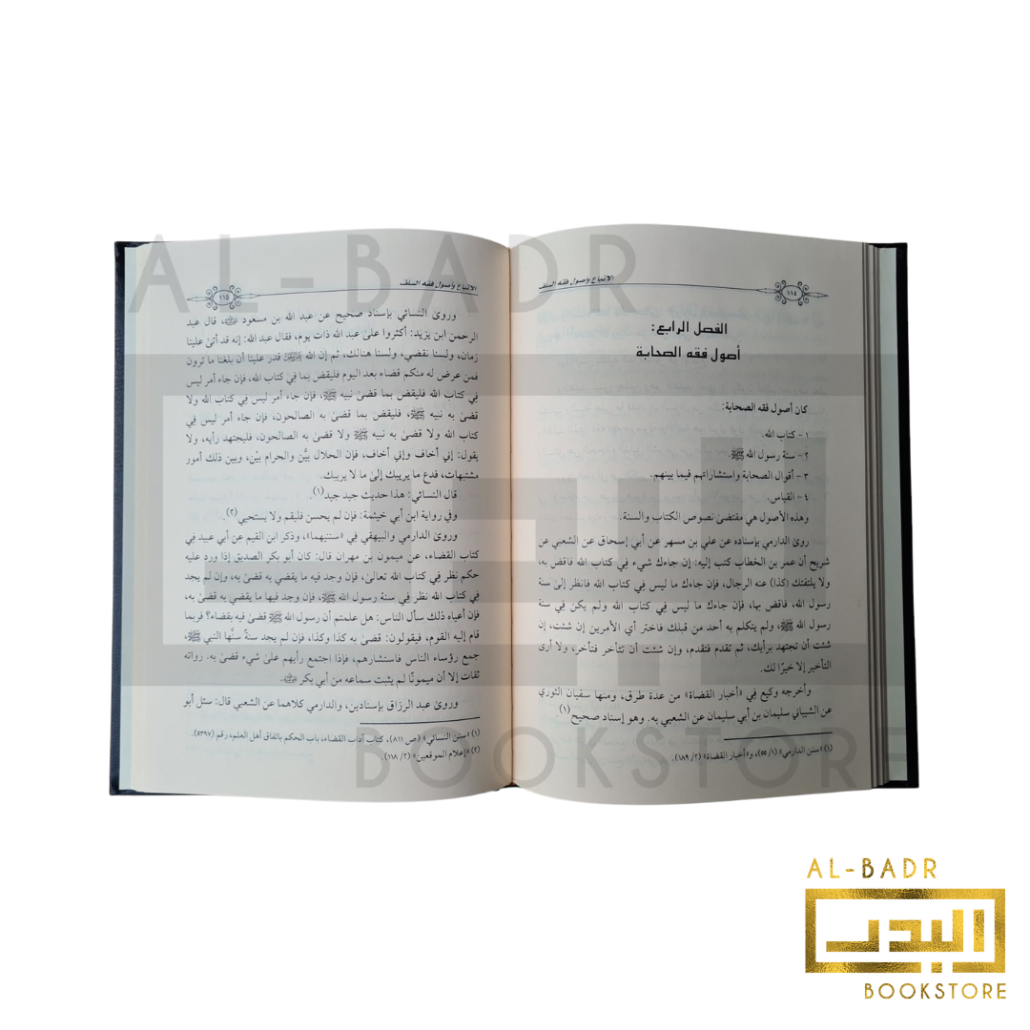 الاتباع وأصول فقه السلف
١١٤
الفصل الرابع:
أصول فقه الصحابة
كان أصول فقه الصحابة:
١- كتاب الله.
٢- سنة رسول الله ﷺ.
٣- أقوال الصحابة واستشاراتهم فيما بينهم.
٤- القياس.
وهذه الأصول هي مقتضى نصوص الكتاب والسنة.
روى الدارمي بإسناده عن علي بن مسهر عن أبي إسحاق عن الشعبي عن
شريح أن عمر بن الخطاب كتب إليه: إن جاءك شيء في كتاب الله فاقض به،
ولا يلتفتك (كذا) عنه الرجال، فإن جاءك ما ليس في كتاب الله فانظر إلى سنة
رسول الله، فاقض بها، فإن جاءك ما ليس في كتاب الله ولم يكن في سنة
رسول الله ﷺ، ولم يتكلم به أحد من قبلك فاختر أي الأمرين إن شئت، إن
شئت أن تجتهد برأيك، ثم تقدم فتقدم، وإن شئت أن تتأخر فتأخر، ولا أرى
التأخير إلا خيرًا لك.
وأخرجه وكيع في «أخبار القضاة» من عدة طرق، ومنها سفيان الثوري
عن الشيباني سليمان بن أبي سليمان عن الشعبي به. وهو إسناد صحيح(١)
(١) «سنن الدارمي» (١/ ٥٥)، و«أخبار القضاة» (٢/ ١٨٩).
الاتباع وأصول فقه السلف
١١٥
وروى النسائي بإسناد صحيح عن عبد الله بن مسعود ﷺ، قال عبد
الرحمن ابن يزيد: أكثروا على عبد الله ذات يوم، فقال عبد الله: إنه قد أتى علينا
زمان، ولسنا نقضي، ولسنا هنالك، ثم إن الله قدر علينا أن بلغنا ما ترون
فمن عرض له منكم قضاء بعد اليوم فليقض بما في كتاب الله، فإن جاء أمر ليس
في كتاب الله فليقض بما قضى نبيه ﷺ، فإن جاء أمر ليس في كتاب الله ولا
قضى به نبيه ﷺ، فليقض بما قضى به الصالحون، فإن جاء أمر ليس في
كتاب الله ولا قضى به نبيه ﷺ ولا قضى به الصالحون، فليجتهد رأيه، ولا
يقول: إني أخاف وإني أخاف، فإن الحلال بيّن والحرام بيّن، وبين ذلك أمور
مشتبهات، فدع ما يريبك إلى ما لا يريبك.
قال النسائي: هذا حديث جيد جيد(١).
وفي رواية ابن أبي خيثمة: فإن لم يحسن فليقم ولا يستحيي(٢).
وروى الدارمي والبيهقي في «سننيهما»، وذكر ابن القيم عن أبي عبيد في
كتاب القضاء، عن ميمون بن مهران قال: كان أبو بكر الصديق إذا ورد عليه
حكم نظر في كتاب الله تعالى، فإن وجد فيه ما يقضي به قضى به، وإن لم يجد
في كتاب الله نظر في سنة رسول الله ﷺ، فإن وجد فيها ما يقضي به قضى به،
فإن أعياه ذلك سأل الناس: هل علمتم أن رسول الله ﷺ قضى فيه بقضاء؟ فربما
قام إليه القوم، فيقولون: قضى به كذا وكذا، فإن لم يجد سنةً سنَّها النبي ﷺ،
جمع رؤساء الناس فاستشارهم، فإذا اجتمع رأيهم على شيء قضى به. رواته
ثقات إلا أن ميمونًا لم يثبت سماعه من أبي بكر
وروى عبد الرزاق بإسنادين، والدارمي كلاهما عن الشعبي قال: سئل أبو
(١) «سنن النسائي» (ص ٨١١)، كتاب آداب القضاء، باب الحكم باتفاق أهل العلم، رقم (٥٣٩٧).
(٢) «إعلام الموقعين» (٢/ ١١٨).
AL-BADR
BOOKSTORE
AL-BADR
البدر
BOOKSTORE